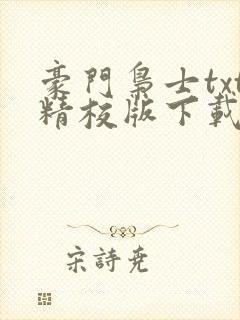 豪門梟士txt
精校版下載
宋詩堯